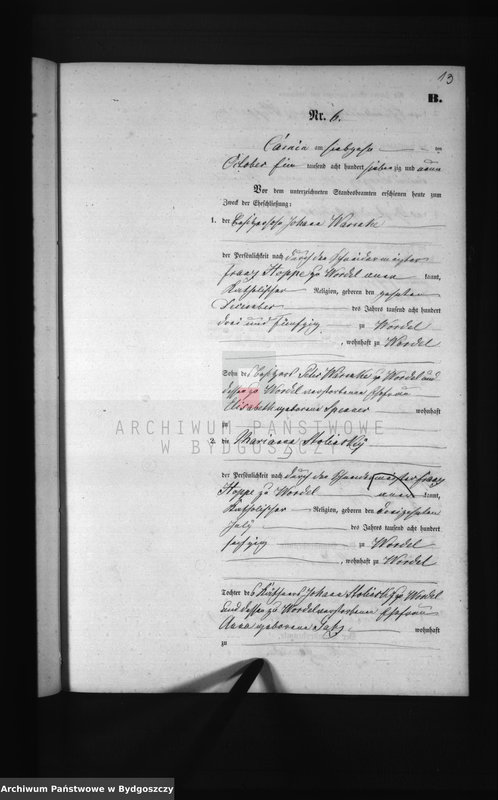 13
B.
Nr. 6.
am siebzehn ten
October ein tausend acht hundert siebenzig und neun
Vor dem unterzeichneten Standesbeamten erschienen heute zum
Zweck der Eheschließung:
1. der Besitzersohn Johann
der Persönlichkeit nach durch den Schneidermeister
Franz Hoppe zu Wordel kannt,
katholischer Religion, geboren den zehnten
December des Jahres tausend acht hundert
drei und fünfzig zu Wordel
, wohnhaft zu Wordel
Sohn des Besitzers Peter zu Wordel und
dessen zu Wordel verstorbenen Ehefrau
Elisabeth geborene wohnhaft
zu
2. die Marianna
der Persönlichkeit nach durch den Schneidermeister Franz
Hoppe zu Wordel kannt,
katholischer Religion, geboren den dreizehnten
July des Jahres tausend acht hundert
sechzig zu Wordel
, wohnhaft zu Wordel
Tochter des Johann zu Wordel
und dessen zu Wordel verstorbenen Ehefrau
Anna geborene wohnhaft
zu
ARCHIWUM PAŃSTWOWE
W BYDGOSZCZY
Archiwum Państwowe w Bydgoszczy